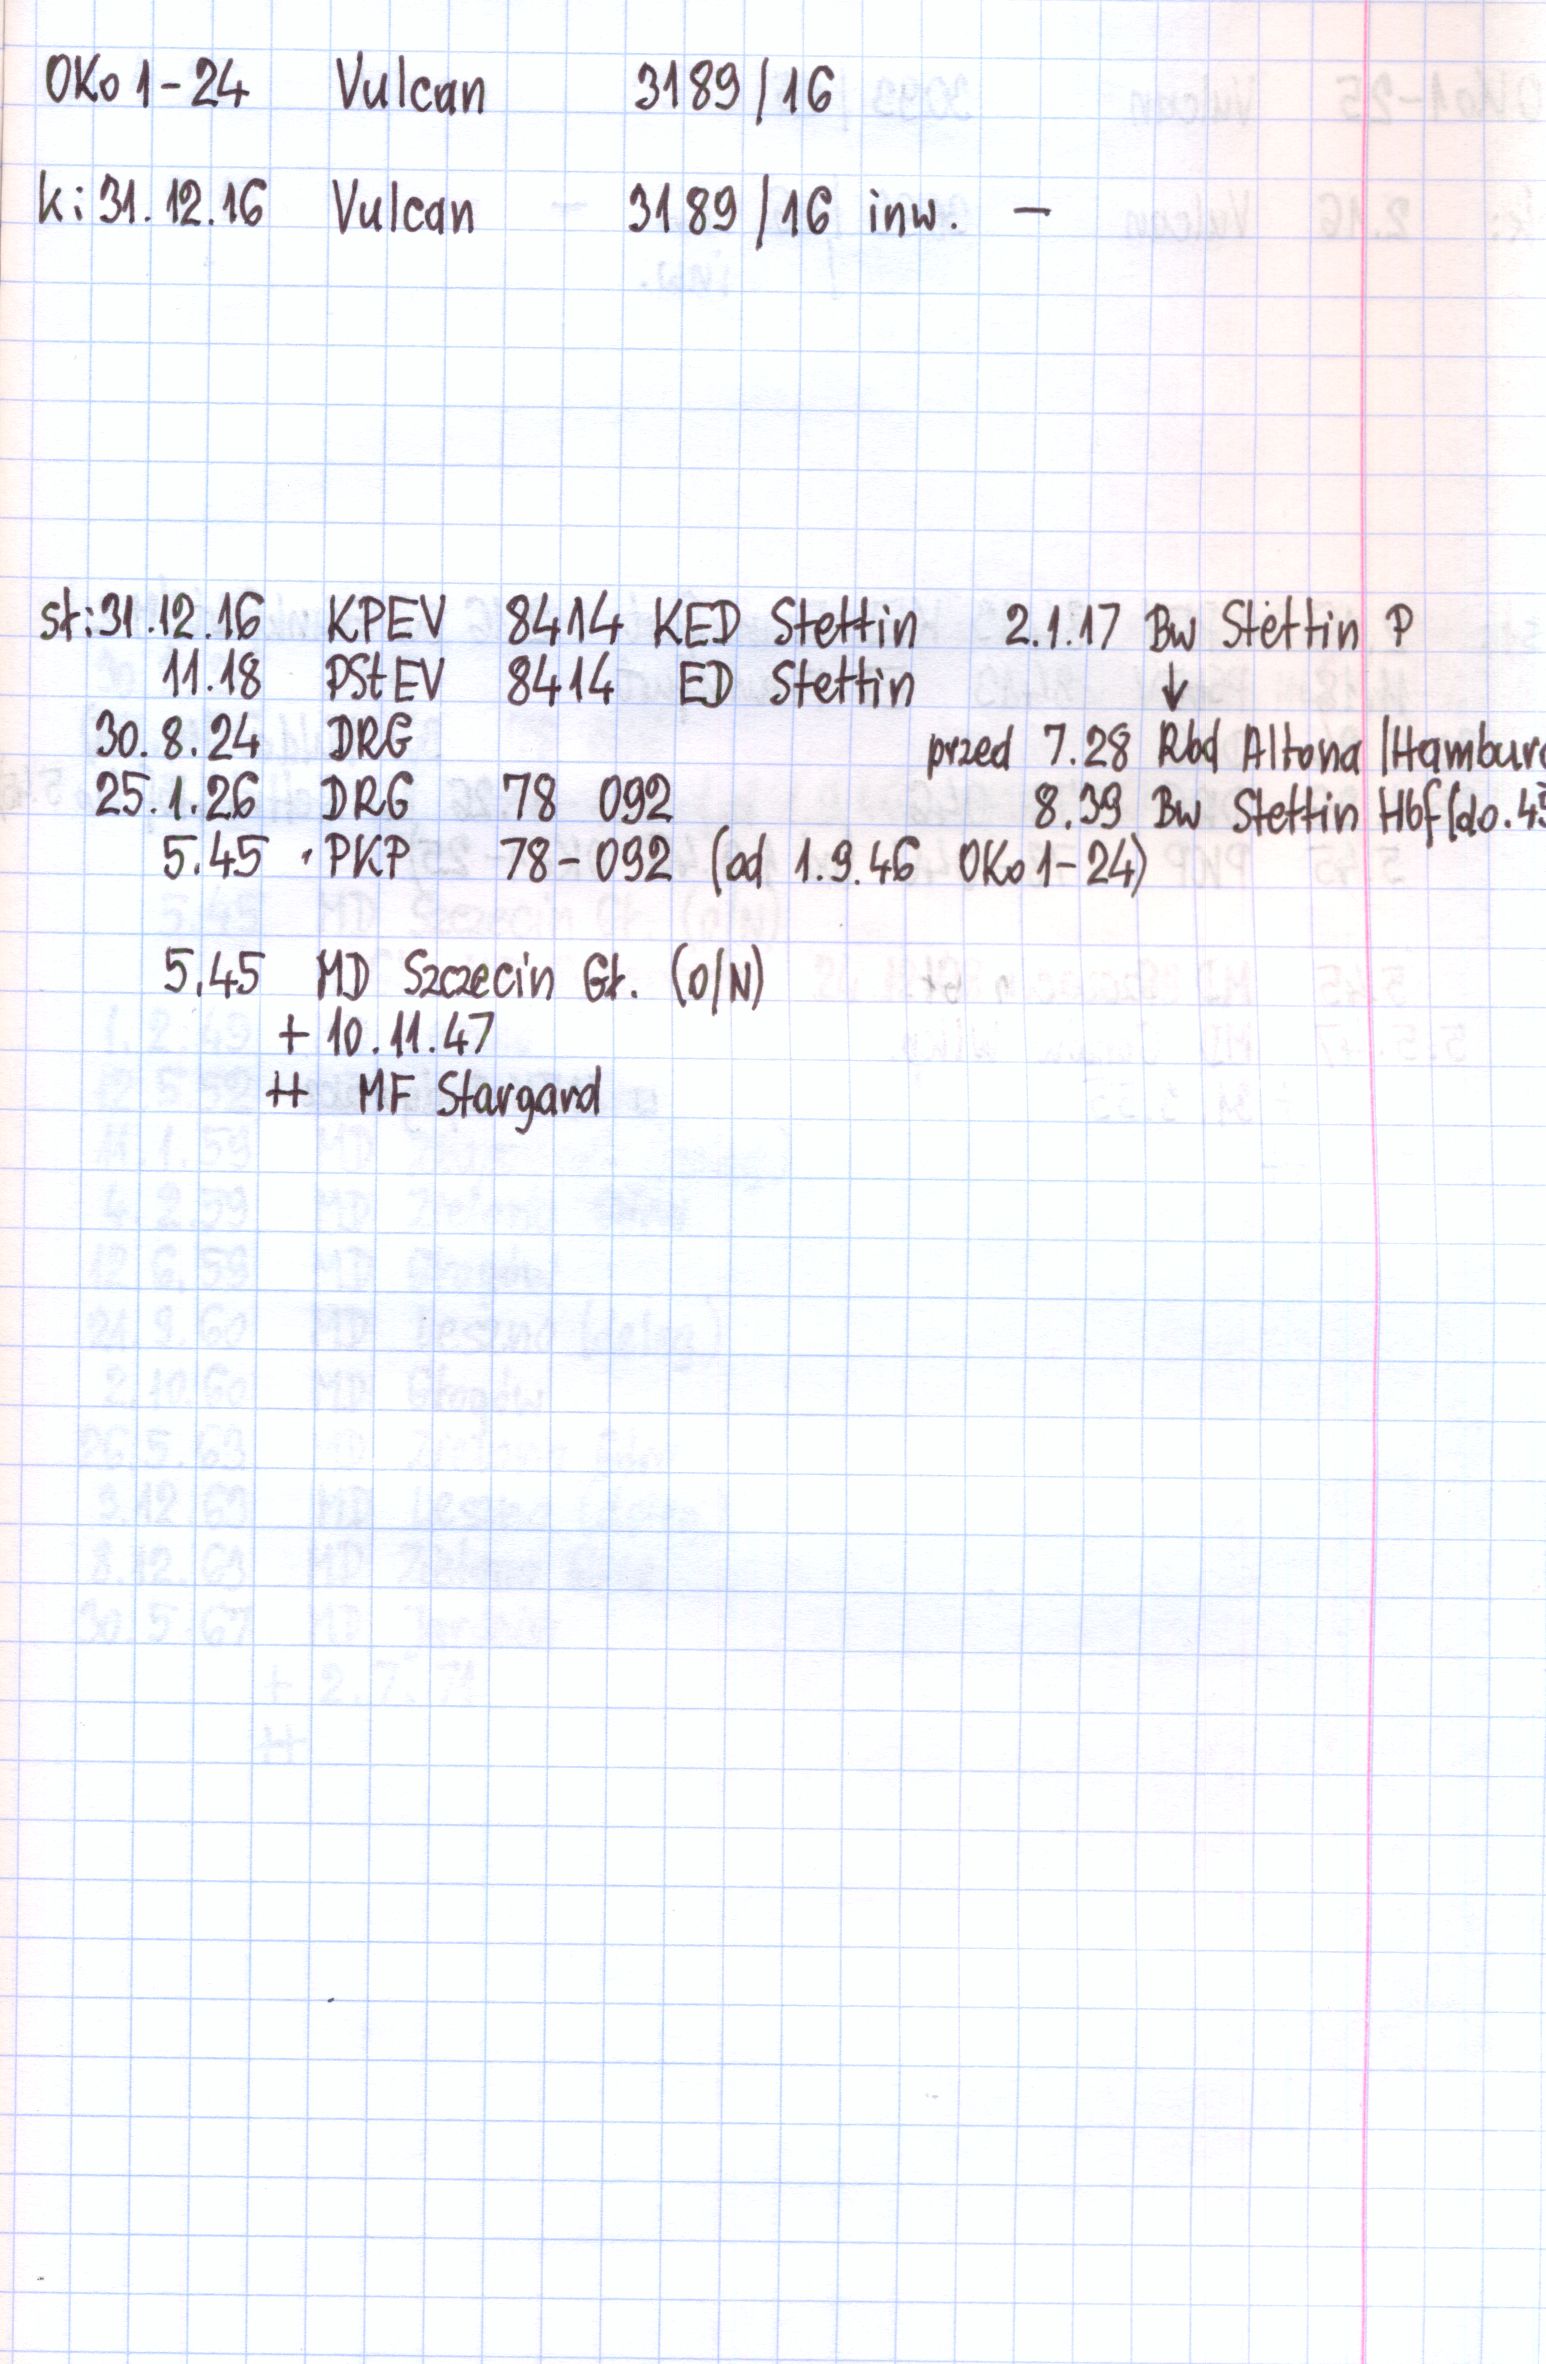 OKo1-24 Vulcan 3189/16
k: 31.12.16 Vulcan 3189/16 inw. –
st: 31.12.16 KPEV 8414 KED Stettin 2.1.17 Bw Stettin P
11.18 PStEV 8414 ED Stettin ↓
30.8.24 DRG przed 7.28 Rbd Altona /Hamburg
25.1.26 DRG 78 092 8.39 Bw Stettin Hbf (do. 45
5.45 PKP 78-092 (od 1.9.46 OKo1-24)
5.45 MD Szczecin Gł. (O/N)
+ 10.11.47
++ MF Stargard